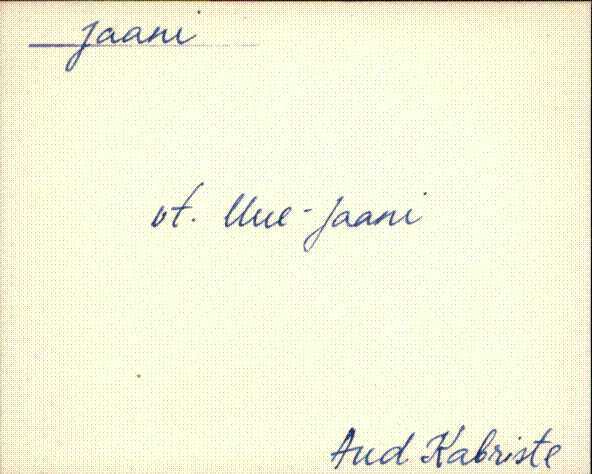 Jaani
vt. Uue-Jaani
Aud Kabriste